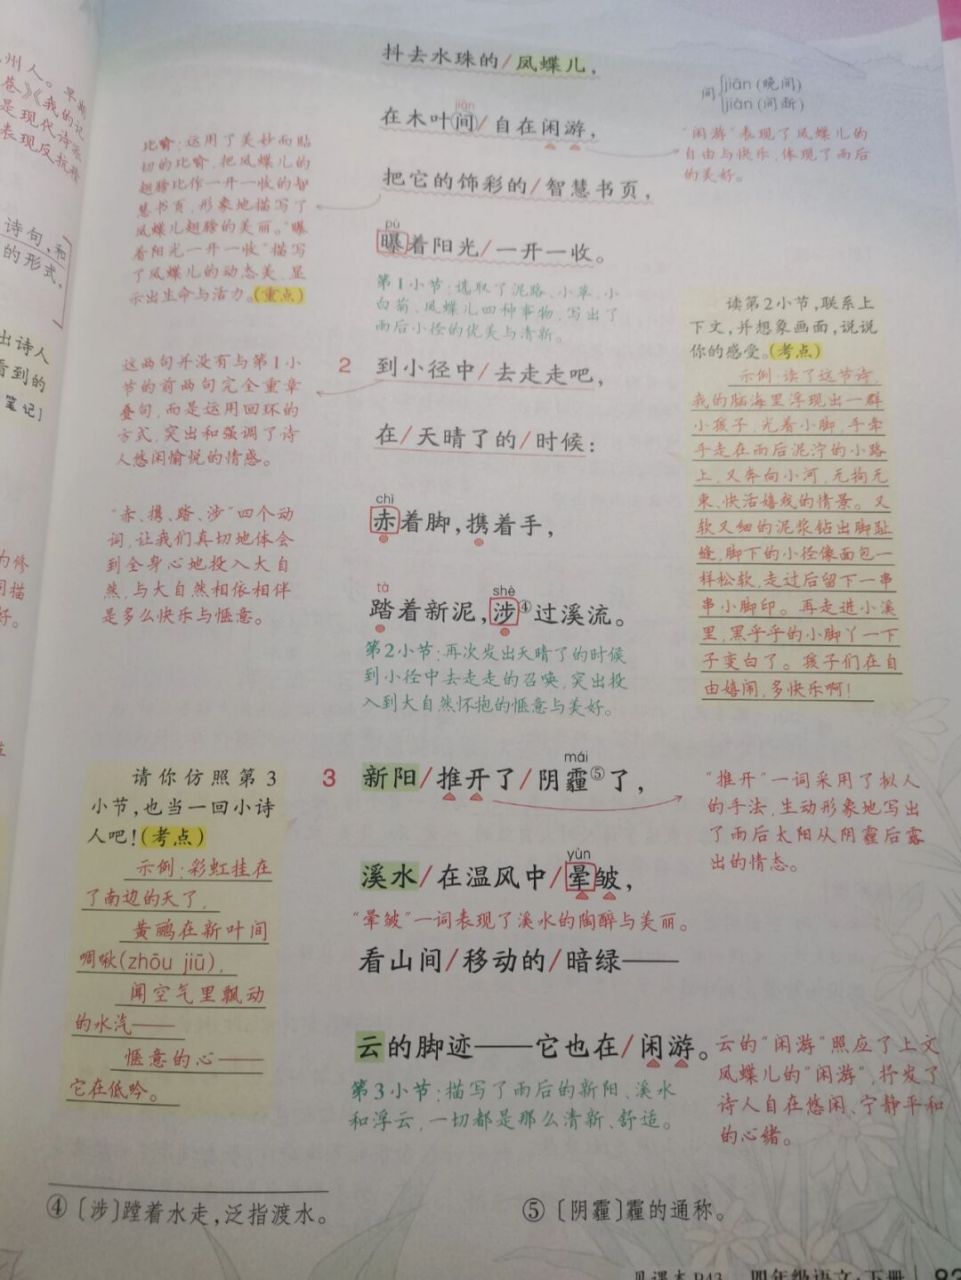 抖去水珠的/凤蝶儿，
jiān
在木叶间/自在闲游，
把它的饰彩的/智慧书页，
pù
曝着阳光/一开一收。
间
jiān（晚间）
jiàn（间断）
"闲游"表现了凤蝶儿的
自由与快乐，体现了雨后
的美好。
比喻：运用了美妙而贴
切的比喻，把凤蝶儿的
翅膀比作一开一收的智
慧书页，形象地描写了
凤蝶儿翅膀的美丽。"曝
着阳光一开一收"描写
了凤蝶儿的动态美，显
示出生命与活力。（重点）
第1小节：选取了泥路、小草、小
白菊、凤蝶儿四种事物，写出了
雨后小径的优美与清新。
2 到小径中/去走走吧，
在/天晴了的/时候：
这两句并没有与第1小
节的前两句完全重章
叠句，而是运用回环的
方式，突出和强调了诗
人悠闲愉悦的情感。
chì
赤着脚，携着手，
tà shè
踏着新泥，涉④过溪流。
"赤、携、踏、涉"四个动
词，让我们真切地体会
到全身心地投入大自
然，与大自然相依相伴
是多么快乐与惬意。
第2小节：再次发出天晴了的时候
到小径中去走走的召唤，突出投
入到大自然怀抱的惬意与美好。
读第2小节，联系上
下文，并想象画面，说说
你的感受。（考点）
示例：读了这节诗，
我的脑海里浮现出一群
小孩子，光着小脚，手牵
手走在雨后泥泞的小路
上，又奔向小河，无拘无
束、快活嬉戏的情景。又
软又细的泥浆钻出脚趾
缝，脚下的小径像面包一
样松软，走过后留下一串
串小脚印。再走进小溪
里，黑乎乎的小脚丫一下
子变白了。孩子们在自
由嬉闹，多快乐啊！
mái
3 新阳/推开了/阴霾⑤了，
yùn
溪水/在温风中/晕皱，
"晕皱"一词表现了溪水的陶醉与美丽。
看山间/移动的/暗绿——
云的脚迹——它也在/闲游。
第3小节：描写了雨后的新阳、溪水
和浮云，一切都是那么清新、舒适。
"推开"一词采用了拟人
的手法，生动形象地写出
了雨后太阳从阴霾后露
出的情态。
云的"闲游"照应了上文
凤蝶儿的"闲游"，抒发了
诗人自在悠闲、宁静平和
的心绪。
请你仿照第3
小节，也当一回小诗
人吧！（考点）
示例：彩虹挂在
了南边的天了，
黄鹂在新叶间
啁啾（zhōu jiū），
闻空气里飘动
的水汽——
惬意的心——
它在低吟。
④〔涉〕蹚着水走，泛指渡水。
⑤〔阴霾〕霾的通称。
州人。
诗句，和
的形式，
出诗人
看到的
笔记］
见课本P43 四年级语文·下册